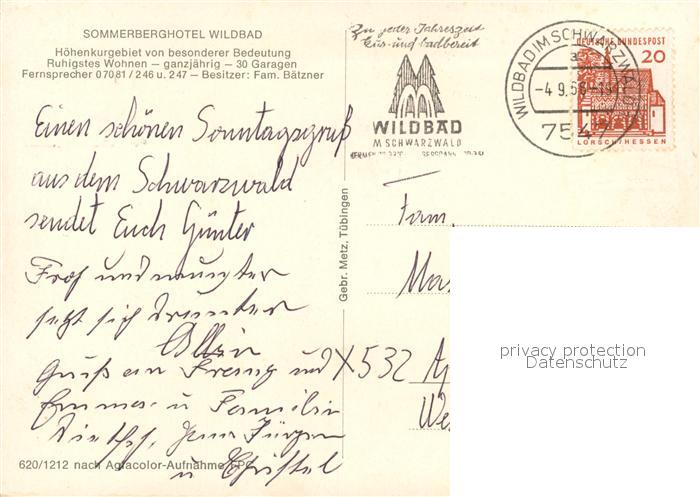 SOMMERBERGHOTEL WILDBAD
Höhenkurgebiet von besonderer Bedeutung
Ruhigstes Wohnen — ganzjährig — 30 Garagen
Fernsprecher 07081 / 246 u. 247 — Besitzer: Fam. Bätzner
Zu jeder Jahreszeit
kur- und badbereit
WILDBAD
IM SCHWARZWALD
WILDBAD IM SCHWARZWALD
a
-4.9.6
7547
DEUTSCHE BUNDESPOST
20
LORSCH/HESSEN
Einen schönen Sonntagsgruß
aus dem Schwarzwald
sendet Euch Günter
Froh und munter
setzt sich drunter
Gruß an Franz und
Emma u Familie
Jürgen
u Christel
Gebr. Metz, Tübingen
Fam.
Ma
X 532 Ap
We
privacy protection
Datenschutz
620/1212 nach Agfacolor-Aufnahme